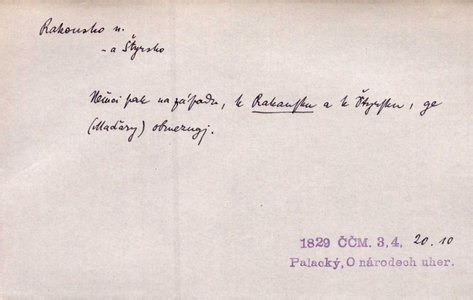 Rakousko n.
- a Štyrsko
Němci pak na západu, k Rakousku a k Štyrsku, ge
(Maďary) obmezugj.
1829 ČČM. 3,4, 20.10
Palacký, O národech uher.